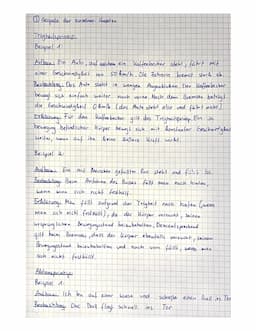 ① Beispiele der einzelnen Gesetze
Trägheitsprinzip:
Beispiel 1:
Aufbau: Ein Auto, auf welchem ein Kaffeebecher steht, fährt mit
einer Geschwindigkeit von 50 km/h. Die Fahrerin bremst stark ab.
Beobachtung: Das Auto steht in wenigen Augenblicken. Der Kaffeebecher
bewegt sich einfach weiter nach vorne. Nach dem Bremsen beträgt
die Geschwindigkeit 0 km/h (das Auto steht also und fährt nicht)
Erklärung: Für den Kaffeebecher gilt das Trägheitsprinzip. Ein in
Bewegung befindlicher Körper bewegt sich mit konstanter Geschwindigkeit
weiter, wenn auf ihn keine Kraft wirkt.
Beispiel 2:
Aufbau: Ein mit Menschen gefüllter Bus steht und fährt
Beobachtung: Beim Anfahren des Busses fällt man nach hinten,
wenn man sich nicht festhält.
Erklärung: Man fällt aufgrund der Trägheit nach hinten (wenn
man sich nicht festhält), da der Körper versucht, seinen
ursprünglichen Bewegungszustand beizubehalten. Dementsprechend
gilt beim Bremsen, dass der Körper ebenfalls versucht, seinen
Bewegungszustand beizubehalten und nach vorn fällt, wenn man
sich nicht festhält.
Aktionsprinzip:
Beispiel 1:
Aufbau: Ich bin auf einer Wiese und schieße einen Ball ins Tor
Beobachtung: Der Ball fliegt schnell ins Tor